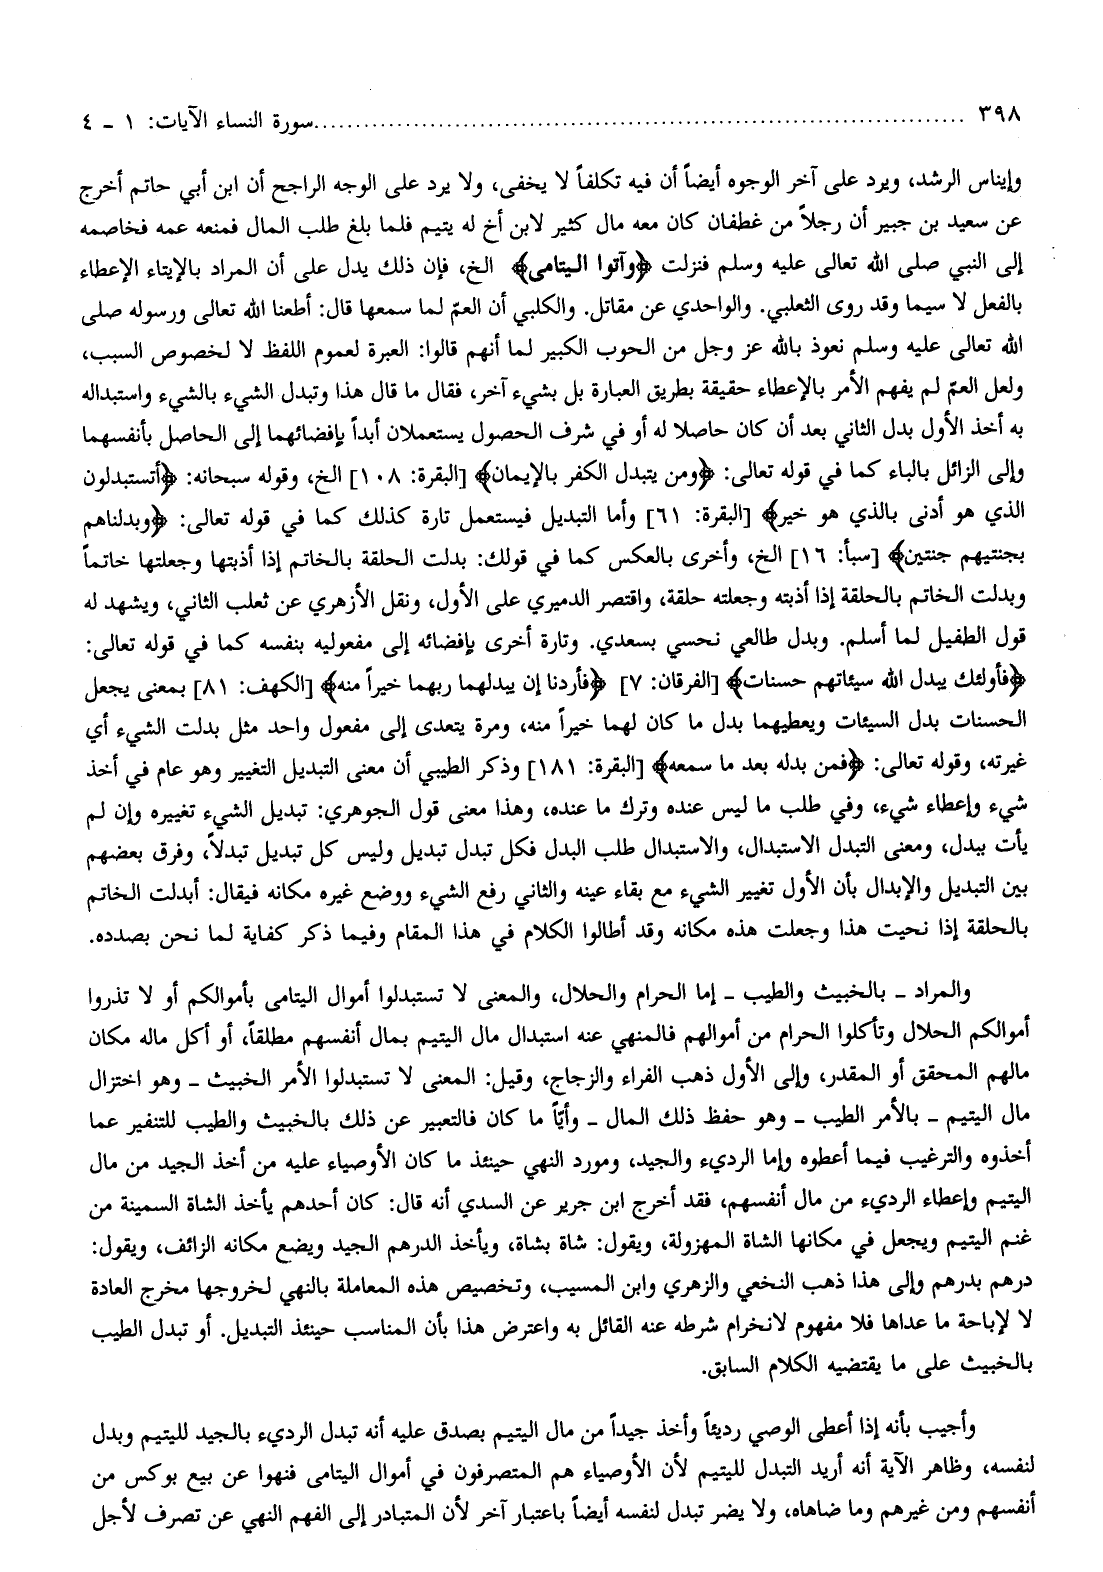 ٣٩٨ ........................................................ سورة النساء الآيات: ١ - ٤
وإيناس الرشد، ويرد على آخر الوجوه أيضاً أن فيه تكلفاً لا يخفى، ولا يرد على الوجه الراجح أن ابن أبي حاتم أخرج
عن سعيد بن جبير أن رجلاً من غطفان كان معه مال كثير لابن أخ له يتيم فلما بلغ طلب المال فمنعه عمه فخاصمه
إلى النبي صلى الله تعالى عليه وسلم فنزلت ﴿وآتوا اليتامى﴾ الخ، فإن ذلك يدل على أن المراد بالإيتاء الإعطاء
بالفعل لا سيما وقد روى الثعلبي. والواحدي عن مقاتل. والكلبي أن العمّ لما سمعها قال: أطعنا الله تعالى ورسوله صلى
الله تعالى عليه وسلم نعوذ بالله عز وجل من الحوب الكبير لما أنهم قالوا: العبرة لعموم اللفظ لا لخصوص السبب،
ولعل العمّ لم يفهم الأمر بالإعطاء حقيقة بطريق العبارة بل بشيء آخر، فقال ما قال هذا وتبدل الشيء بالشيء واستبداله
به أخذ الأول بدل الثاني بعد أن كان حاصلا له أو في شرف الحصول يستعملان أبداً بإفضائهما إلى الحاصل بأنفسهما
وإلى الزائل بالباء كما في قوله تعالى: ﴿ومن يتبدل الكفر بالإيمان﴾ [البقرة: ١٠٨] الخ، وقوله سبحانه: ﴿أتستبدلون
الذي هو أدنى بالذي هو خير﴾ [البقرة: ٦١] وأما التبديل فيستعمل تارة كذلك كما في قوله تعالى: ﴿وبدلناهم
بجنتيهم جنتين﴾ [سبأ: ١٦] الخ، وأخرى بالعكس كما في قولك: بدلت الحلقة بالخاتم إذا أذبتها وجعلتها خاتماً
وبدلت الخاتم بالحلقة إذا أذبته وجعلته حلقة، واقتصر الدميري على الأول، ونقل الأزهري عن ثعلب الثاني، ويشهد له
قول الطفيل لما أسلم. وبدل طالعي نحسي بسعدي. وتارة أخرى بإفضائه إلى مفعوليه بنفسه كما في قوله تعالى:
﴿فأولئك يبدل الله سيئاتهم حسنات﴾ [الفرقان: ٧] ﴿فأردنا إن يبدلهما ربهما خيراً منه﴾ [الكهف: ٨١] بمعنى يجعل
الحسنات بدل السيئات ويعطيهما بدل ما كان لهما خيراً منه، ومرة يتعدى إلى مفعول واحد مثل بدلت الشيء أي
غيرته، وقوله تعالى: ﴿فمن بدله بعد ما سمعه﴾ [البقرة: ١٨١] وذكر الطيبي أن معنى التبديل التغيير وهو عام في أخذ
شيء وإعطاء شيء، وفي طلب ما ليس عنده وترك ما عنده، وهذا معنى قول الجوهري: تبديل الشيء تغييره وإن لم
يأت ببدل، ومعنى التبدل الاستبدال، والاستبدال طلب البدل فكل تبدل تبديل وليس كل تبديل تبدلاً، وفرق بعضهم
بين التبديل والإبدال بأن الأول تغيير الشيء مع بقاء عينه والثاني رفع الشيء ووضع غيره مكانه فيقال: أبدلت الخاتم
بالحلقة إذا نحيت هذا وجعلت هذه مكانه وقد أطالوا الكلام في هذا المقام وفيما ذكر كفاية لما نحن بصدده.
والمراد - بالخبيث والطيب - إما الحرام والحلال، والمعنى لا تستبدلوا أموال اليتامى بأموالكم أو لا تذروا
أموالكم الحلال وتأكلوا الحرام من أموالهم فالمنهي عنه استبدال مال اليتيم بمال أنفسهم مطلقاً، أو أكل ماله مكان
مالهم المحقق أو المقدر، وإلى الأول ذهب الفراء والزجاج، وقيل: المعنى لا تستبدلوا الأمر الخبيث - وهو اختزال
مال اليتيم - بالأمر الطيب - وهو حفظ ذلك المال - وأيّاً ما كان فالتعبير عن ذلك بالخبيث والطيب للتنفير عما
أخذوه والترغيب فيما أعطوه وإما الرديء والجيد، ومورد النهي حينئذ ما كان الأوصياء عليه من أخذ الجيد من مال
اليتيم وإعطاء الرديء من مال أنفسهم، فقد أخرج ابن جرير عن السدي أنه قال: كان أحدهم يأخذ الشاة السمينة من
غنم اليتيم ويجعل في مكانها الشاة المهزولة، ويقول: شاة بشاة، ويأخذ الدرهم الجيد ويضع مكانه الزائف، ويقول:
درهم بدرهم وإلى هذا ذهب النخعي والزهري وابن المسيب، وتخصيص هذه المعاملة بالنهي لخروجها مخرج العادة
لا لإباحة ما عداها فلا مفهوم لانخرام شرطه عنه القائل به واعترض هذا بأن المناسب حينئذ التبديل. أو تبدل الطيب
بالخبيث على ما يقتضيه الكلام السابق.
وأجيب بأنه إذا أعطى الوصي رديئاً وأخذ جيداً من مال اليتيم بصدق عليه أنه تبدل الرديء بالجيد لليتيم وبدل
لنفسه، وظاهر الآية أنه أريد التبدل لليتيم لأن الأوصياء هم المتصرفون في أموال اليتامى فنهوا عن بيع بوكس من
أنفسهم ومن غيرهم وما ضاهاه، ولا يضر تبدل لنفسه أيضاً باعتبار آخر لأن المتبادر إلى الفهم النهي عن تصرف لأجل